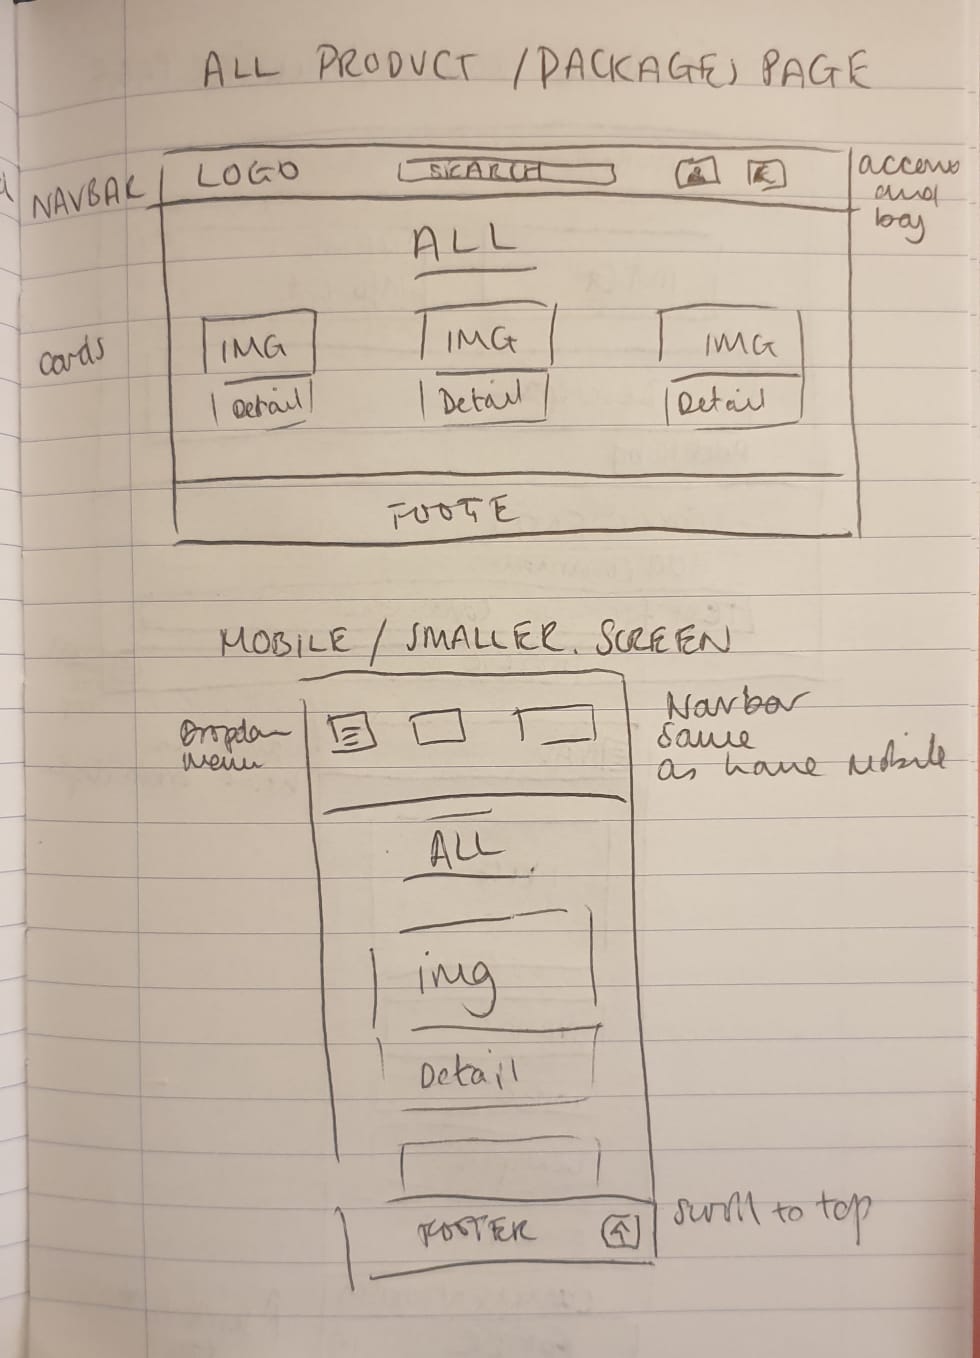 ALL PRODUCT /PACKAGE, PAGE
NAVBAR
LOGO
SEARCH
and
bag
ALL
cards
IMG
IMG
IMG
Detail
Detail
Detail
FOOTE
MOBILE / SMALLER. SCREEN
menu
Navbar
same
as home Mobile
ALL
img
Detail
FOOTER
scroll to top